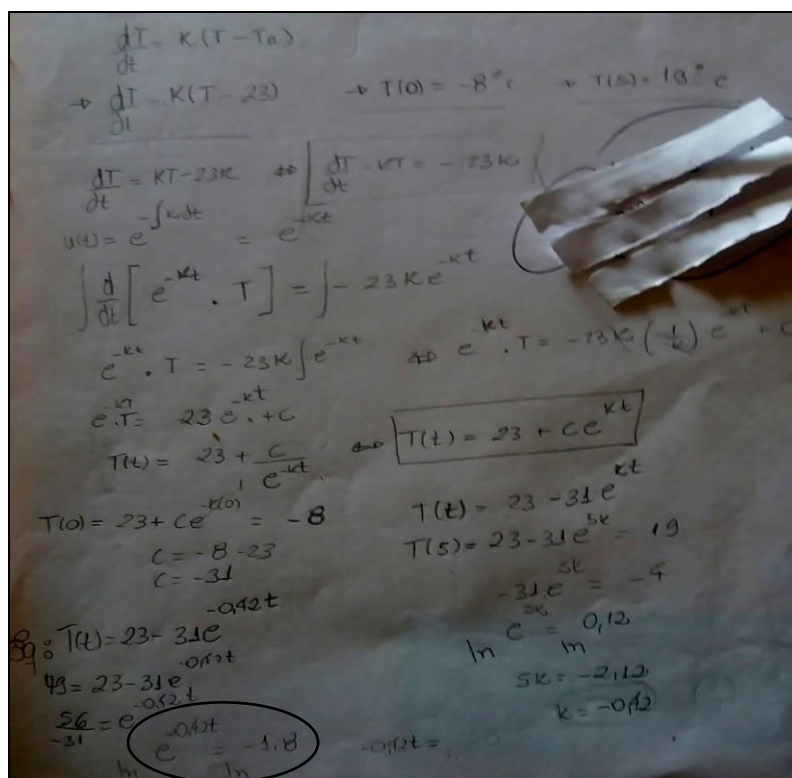 dT/dt = K(T - Ta)
→ dT/dt = K(T - 23) → T(0) = -8°c → T(5) = 19°c
dT/dt = KT - 23K ⇔ dT/dt - KT = -23K
u(t) = e^{-∫Kdt} = e^{-Kt}
∫ d/dt [e^{-Kt} . T] = ∫ - 23Ke^{-Kt}
e^{-Kt} . T = -23K ∫ e^{-Kt} ⇔ e^{-Kt} . T = -23K (-1/K) e^{-Kt} + C
e^{-Kt}.T = 23 e^{-Kt}. + C
T(t) = 23 + C/e^{-Kt} ⇔ T(t) = 23 + Ce^{Kt}
T(0) = 23 + Ce^{-K(0)} = -8
C = -8 - 23
C = -31
T(t) = 23 - 31e^{Kt}
T(5) = 23 - 31e^{5K} = 19
-31e^{5K} = -4
ln e^{5K} = 0,12 ln
5K = -2,12
K = -0,42
: T(t) = 23 - 31e^{-0,42t}
49 = 23 - 31e^{-0,42t}
56/-31 = e^{-0,42t}
ln e^{-0,42t} = -1,8 ln -0,42t =